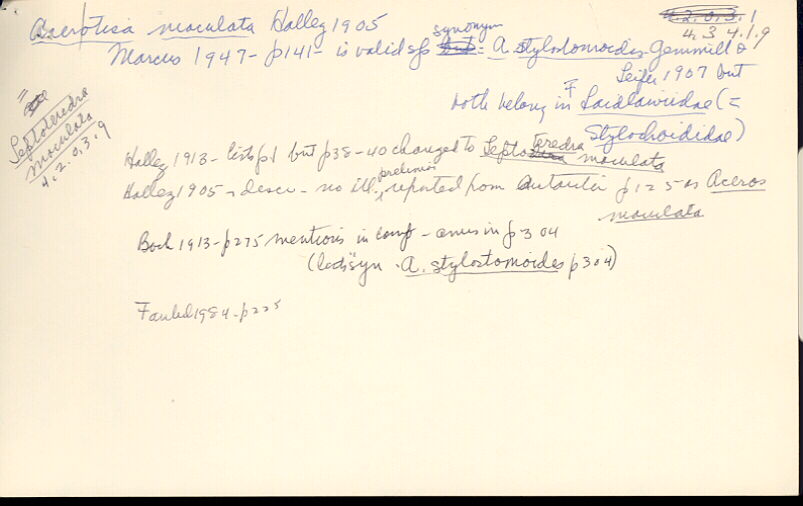 Acerotisa maculata Hallez 1905
4.2.0.3.1
4.3 4.1.9
Marcus 1947 - p141 - is valid sp but = synonym A. stylostomoides Gemmill &
Leiper 1907 but
both belong in F Laidlawiidae (=
Stylochoididae)
=
Leptoteredra
maculata
4.2.0.3.9
Hallez 1913 - lists p1 but p38-40 changed to Leptoteredra maculata
Hallez 1905 - descr - no ill., prelimin reported from Antarctic p125 as Aceros
maculata
Bock 1913 - p275 mentions in comp - in p304
(syn. A. stylostomoides p304)
Faubel 1984 - p225